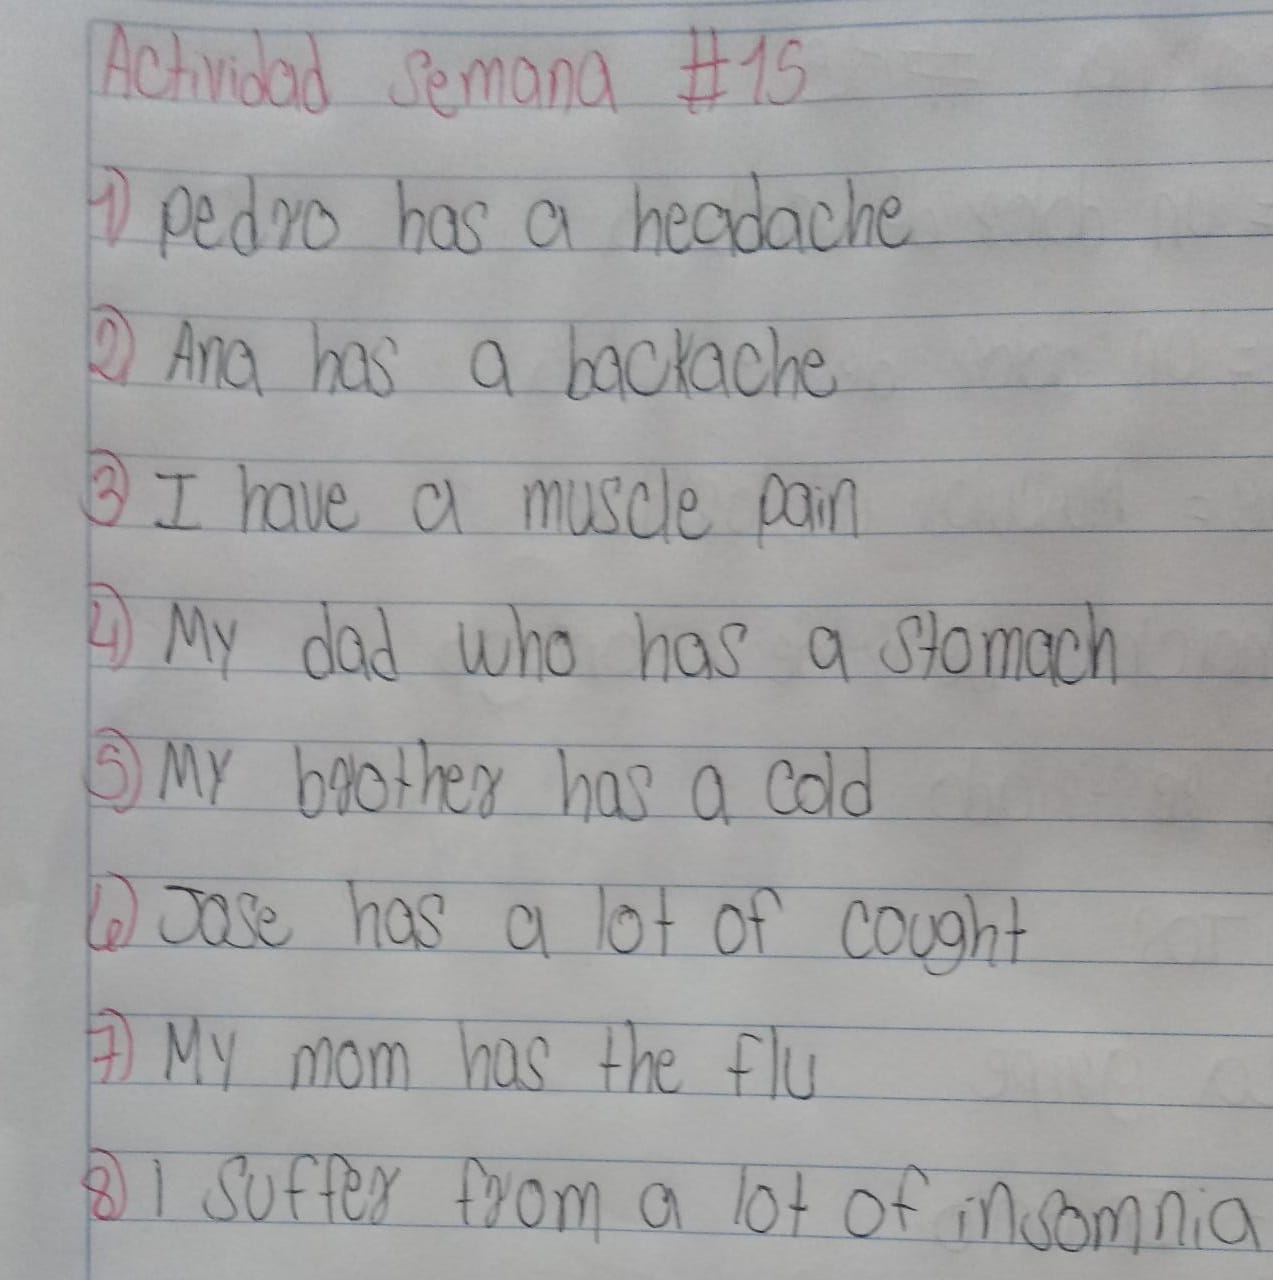 Actividad semana #15
1) pedro has a headache
2) Ana has a backache
3) I have a muscle pain
4) My dad who has a stomach
5) My brother has a cold
6) Jose has a lot of cought
7) My mom has the flu
8) I suffer from a lot of insomnia